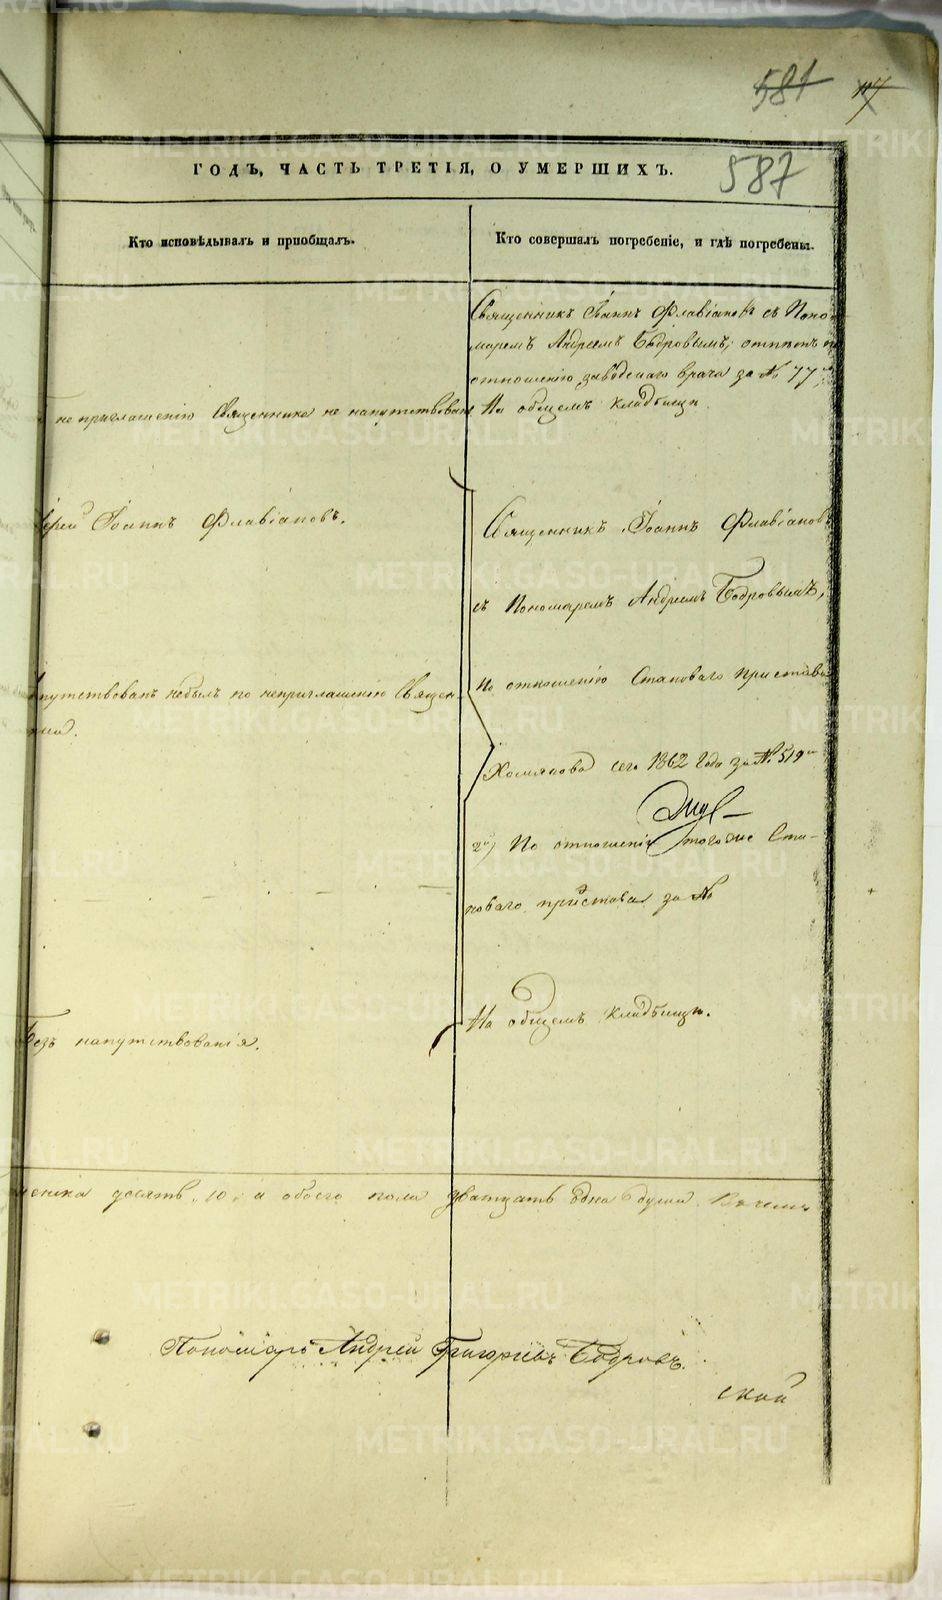 581
587
ГОДЪ, ЧАСТЬ ТРЕТІЯ, О УМЕРШИХЪ.
Кто исповѣдывалъ и пріобщалъ.
Кто совершалъ погребеніе, и гдѣ погребены.
Священникъ Іоаннъ Флавіановъ съ Поно-
маремъ Андреемъ Бодровымъ; отпѣтъ по
отношенію заводскаго врача за № 77
не приглашенію Священника не напутствованъ
На общемъ кладбищѣ.
Іерей Іоаннъ Флавіановъ.
Священникъ Іоаннъ Флавіановъ
съ Пономаремъ Андреемъ Бодровымъ,
По отношенію Становаго Пристава
Напутствованъ небылъ по неприглашенію Священ-
ника.
Хомякова сего 1862 Года за № 519
2) По отношенію тогоже Ста-
новаго пристава за №
На общемъ кладбищѣ.
Безъ напутствованія.
женска десять 10, а обоего пола дватцать одна душа.
Пономарь Андрей Григорьевъ Бодровъ.
ской
METRIKI.GASO-URAL.RU